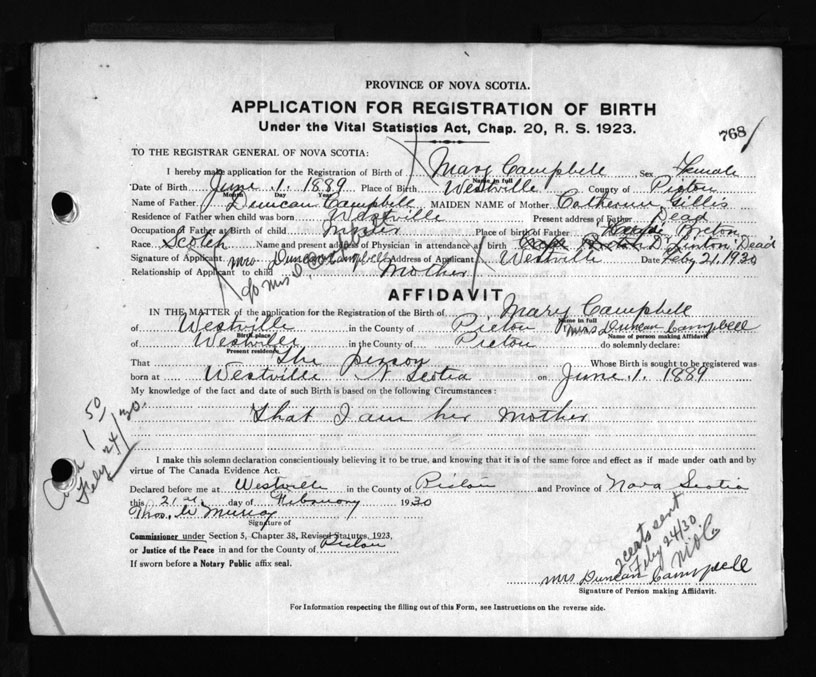 PROVINCE OF NOVA SCOTIA.
APPLICATION FOR REGISTRATION OF BIRTH
Under the Vital Statistics Act, Chap. 20, R. S. 1923.
768
TO THE REGISTRAR GENERAL OF NOVA SCOTIA:
I hereby make application for the Registration of Birth of Mary Campbell Sex Female
Name in full
Date of Birth June 1. 1889 Place of Birth Westville County of Pictou
Month Day Year
Name of Father Duncan Campbell MAIDEN NAME of Mother Catherine Gillis
Residence of Father when child was born Westville Present address of Father Dead
Occupation of Father at Birth of child Miner Place of birth of Father Cape Breton
Race Scotch Name and present address of Physician in attendance at birth Dead
Signature of Applicant Mrs Duncan Campbell Address of Applicant Westville Date Feby 21, 1930
Relationship of Applicant to child Mother
c/o Mrs D.
AFFIDAVIT
IN THE MATTER of the application for the Registration of the Birth of Mary Campbell
Name in full
of Westville in the County of Pictou I, Mrs Duncan Campbell
Birth place Name of person making Affidavit
of Westville in the County of Pictou do solemnly declare:
Present residence
That The person Whose Birth is sought to be registered was
born at Westville N Scotia on June 1. 1889
My knowledge of the fact and date of such Birth is based on the following Circumstances:
That I am her Mother
Cash 1 50
Feby 24/30.
I make this solemn declaration conscientiously believing it to be true, and knowing that it is of the same force and effect as if made under oath and by
virtue of The Canada Evidence Act.
Declared before me at Westville in the County of Pictou and Province of Nova Scotia
this 21st day of February 1930
Thos. W Murray
Signature of
Commissioner under Section 5, Chapter 38, Revised Statutes, 1923,
or Justice of the Peace in and for the County of Pictou
If sworn before a Notary Public affix seal.
2 cents sent
Feby 24/30
Mrs Duncan Campbell
Signature of Person making Affidavit.
For Information respecting the filling out of this Form, see Instructions on the reverse side.